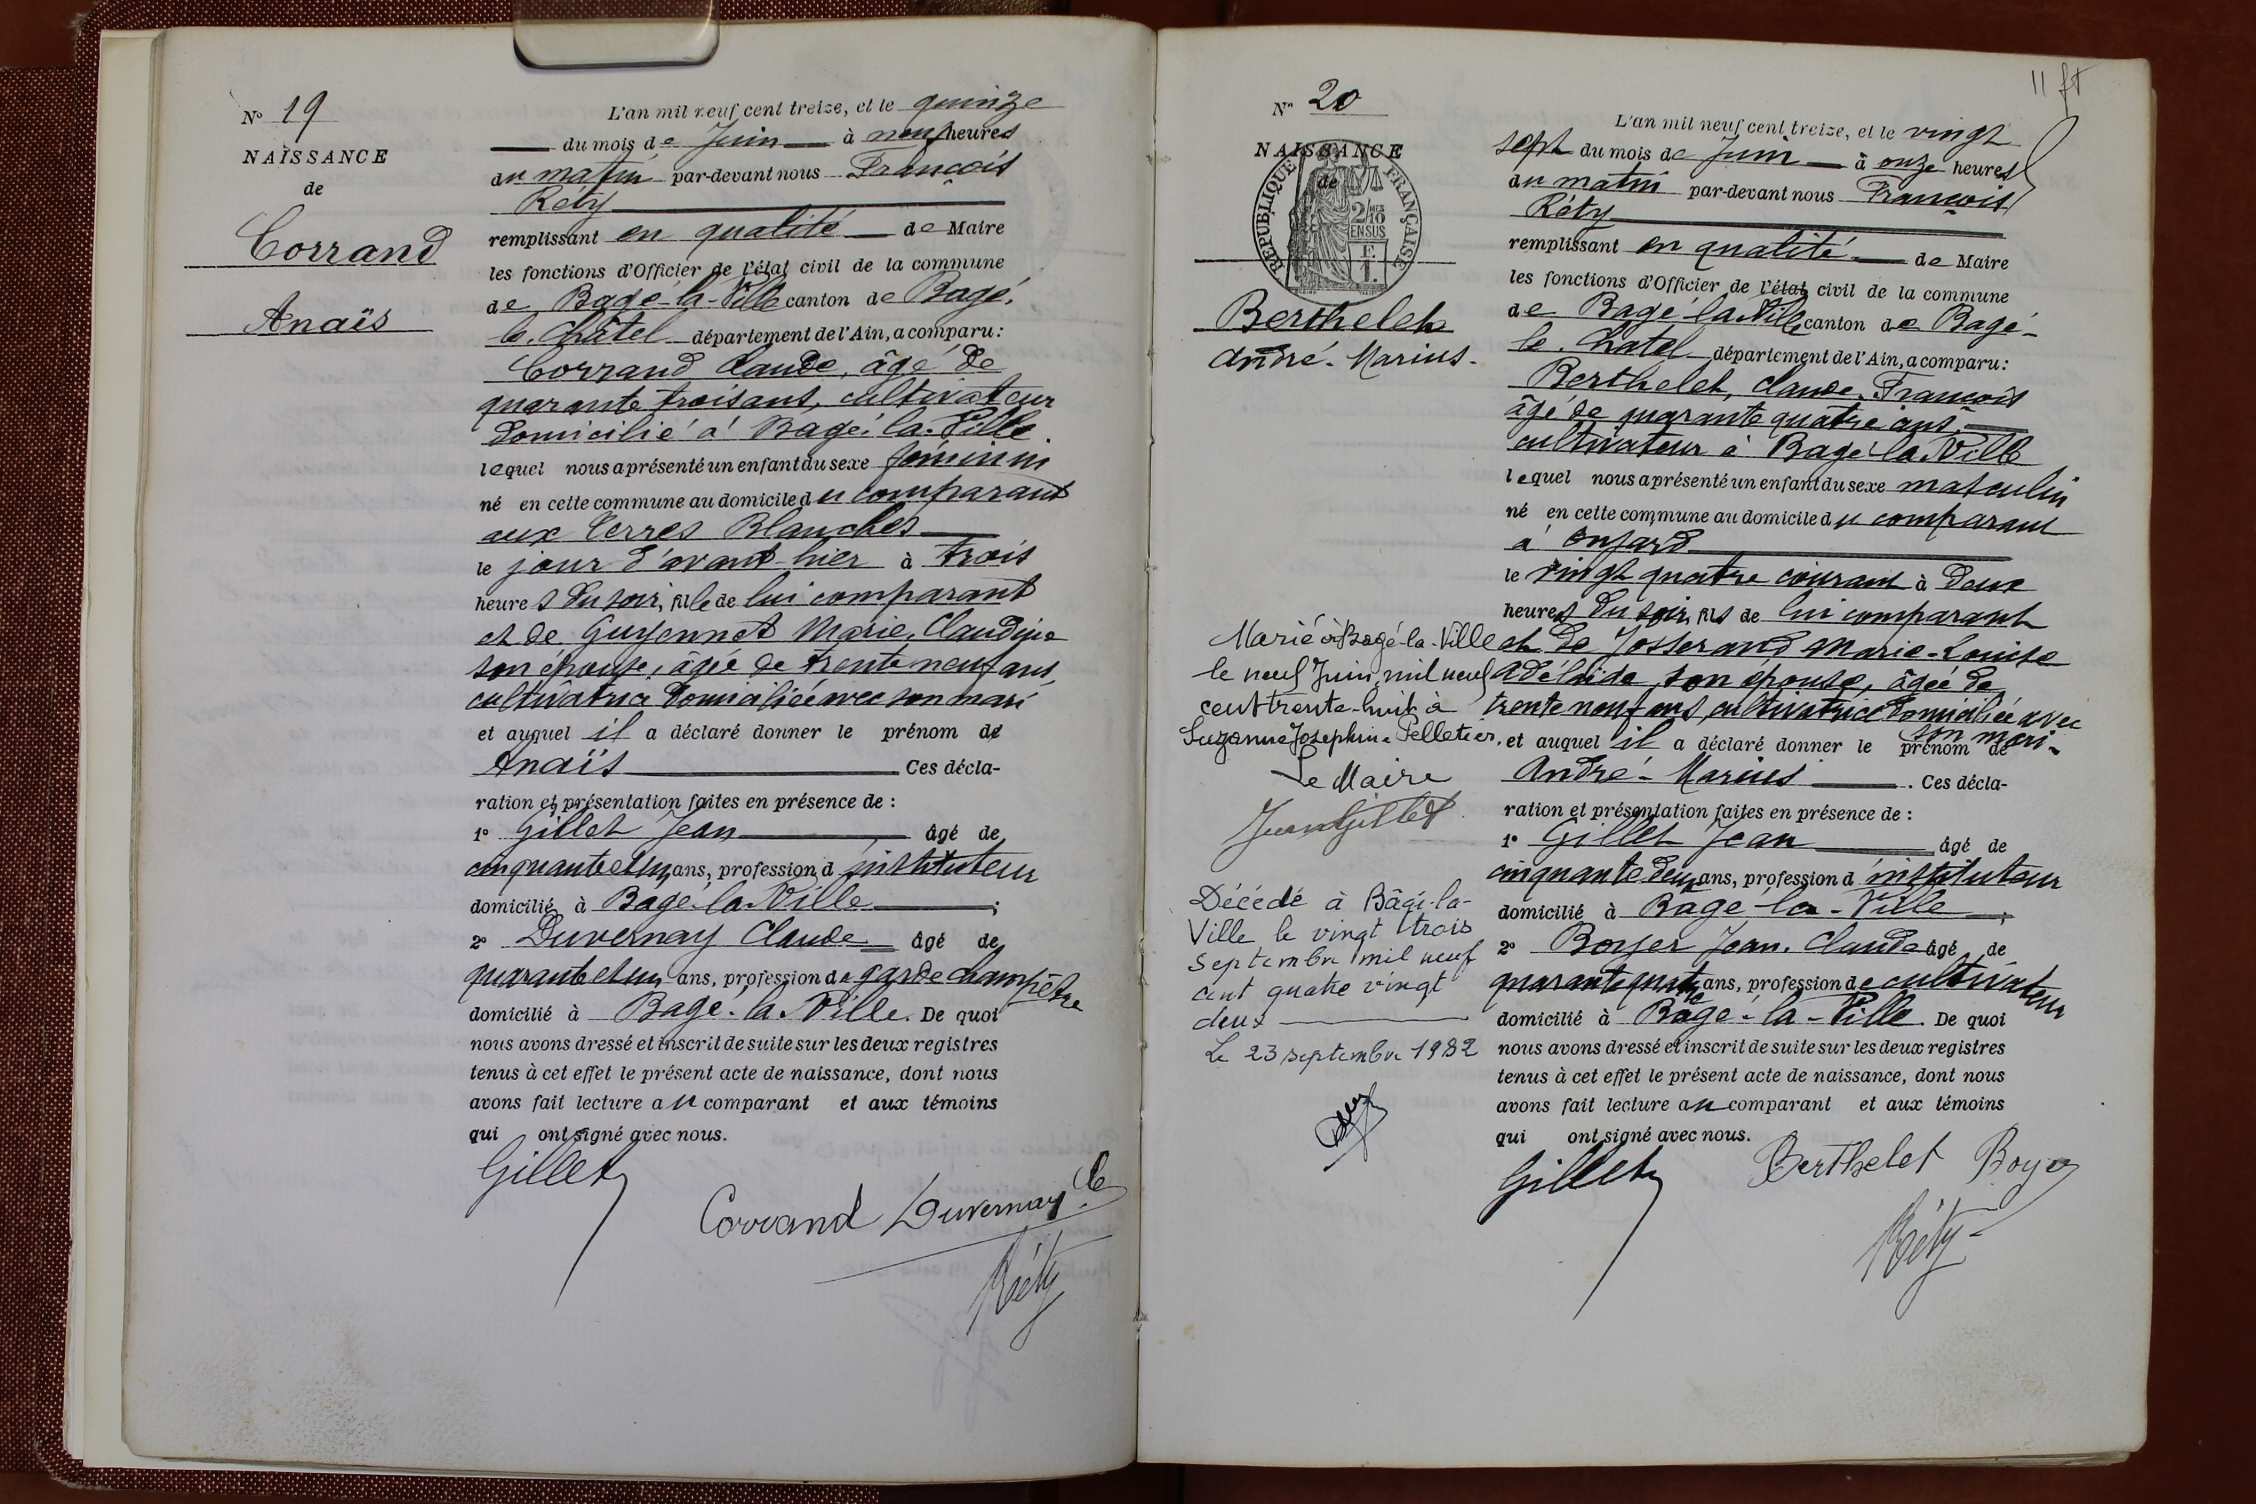 N° 19
NAISSANCE
de
Corrand
Anaïs
L'an mil neuf cent treize, et le quinze
du mois de Juin à neuf heures
du matin par-devant nous François
Réty
remplissant en qualité de Maire
les fonctions d'Officier de l'état civil de la commune
de Bagé-la-Ville canton de Bagé-
le-Châtel département de l'Ain, a comparu :
Corrand Claude, âgé de
quarante trois ans, cultivateur
domicilié à Bagé-la-Ville.
lequel nous a présenté un enfant du sexe féminin
né en cette commune au domicile du comparant
aux Terres Blanches
le jour d'avant-hier à trois
heures du soir, fille de lui comparant
et de Guyennet Marie, Claudine
son épouse, âgée de trente neuf ans,
cultivatrice domiciliée avec son mari
et auquel il a déclaré donner le prénom de
Anaïs Ces décla-
ration et présentation faites en présence de :
1° Gillet Jean, âgé de
cinquante et un ans, profession d'instituteur
domicilié à Bagé-la-Ville ;
2° Duvernay Claude âgé de
quarante et un ans, profession de garde champêtre
domicilié à Bagé-la-Ville. De quoi
nous avons dressé et inscrit de suite sur les deux registres
tenus à cet effet le présent acte de naissance, dont nous
avons fait lecture au comparant et aux témoins
qui ont signé avec nous.
Gillet
Corrand Duvernay Cle
Réty
11 ft
N° 20
NAISSANCE
de
RÉPUBLIQUE FRANÇAISE
2/10 EN SUS
F. 1.
Berthelet
André-Marius.
Marié à Bagé-la-Ville
le neuf Juin mil neuf
cent trente-huit à
Suzanne Josephine Pelletier.
Le Maire
Jean Gillet
Décédé à Bâgé-la-
Ville le vingt trois
septembre mil neuf
cent quatre vingt
deux
Le 23 septembre 1982
L'an mil neuf cent treize, et le vingt
sept du mois de Juin à onze heures
du matin par-devant nous François
Réty
remplissant en qualité de Maire
les fonctions d'Officier de l'état civil de la commune
de Bagé-la-Ville canton de Bagé-
le-Chatel département de l'Ain, a comparu :
Berthelet, Claude-François
âgé de quarante quatre ans,
cultivateur à Bagé-la-Ville
lequel nous a présenté un enfant du sexe masculin
né en cette commune au domicile du comparant
à Onjard
le vingt quatre courant à deux
heures du soir, fils de lui comparant
et de Josserand Marie-Louise
Adélaïde, son épouse, âgée de
trente neuf ans, cultivatrice domiciliée avec
son mari.
et auquel il a déclaré donner le prénom de
André-Marius. Ces décla-
ration et présentation faites en présence de :
1° Gillet Jean âgé de
cinquante deux ans, profession d'instituteur
domicilié à Bagé-la-Ville ;
2° Boyer Jean, Claude âgé de
quarante quatre ans, profession de cultivateur
domicilié à Bagé-la-Ville. De quoi
nous avons dressé et inscrit de suite sur les deux registres
tenus à cet effet le présent acte de naissance, dont nous
avons fait lecture au comparant et aux témoins
qui ont signé avec nous.
Gillet Berthelet Boyer
Réty